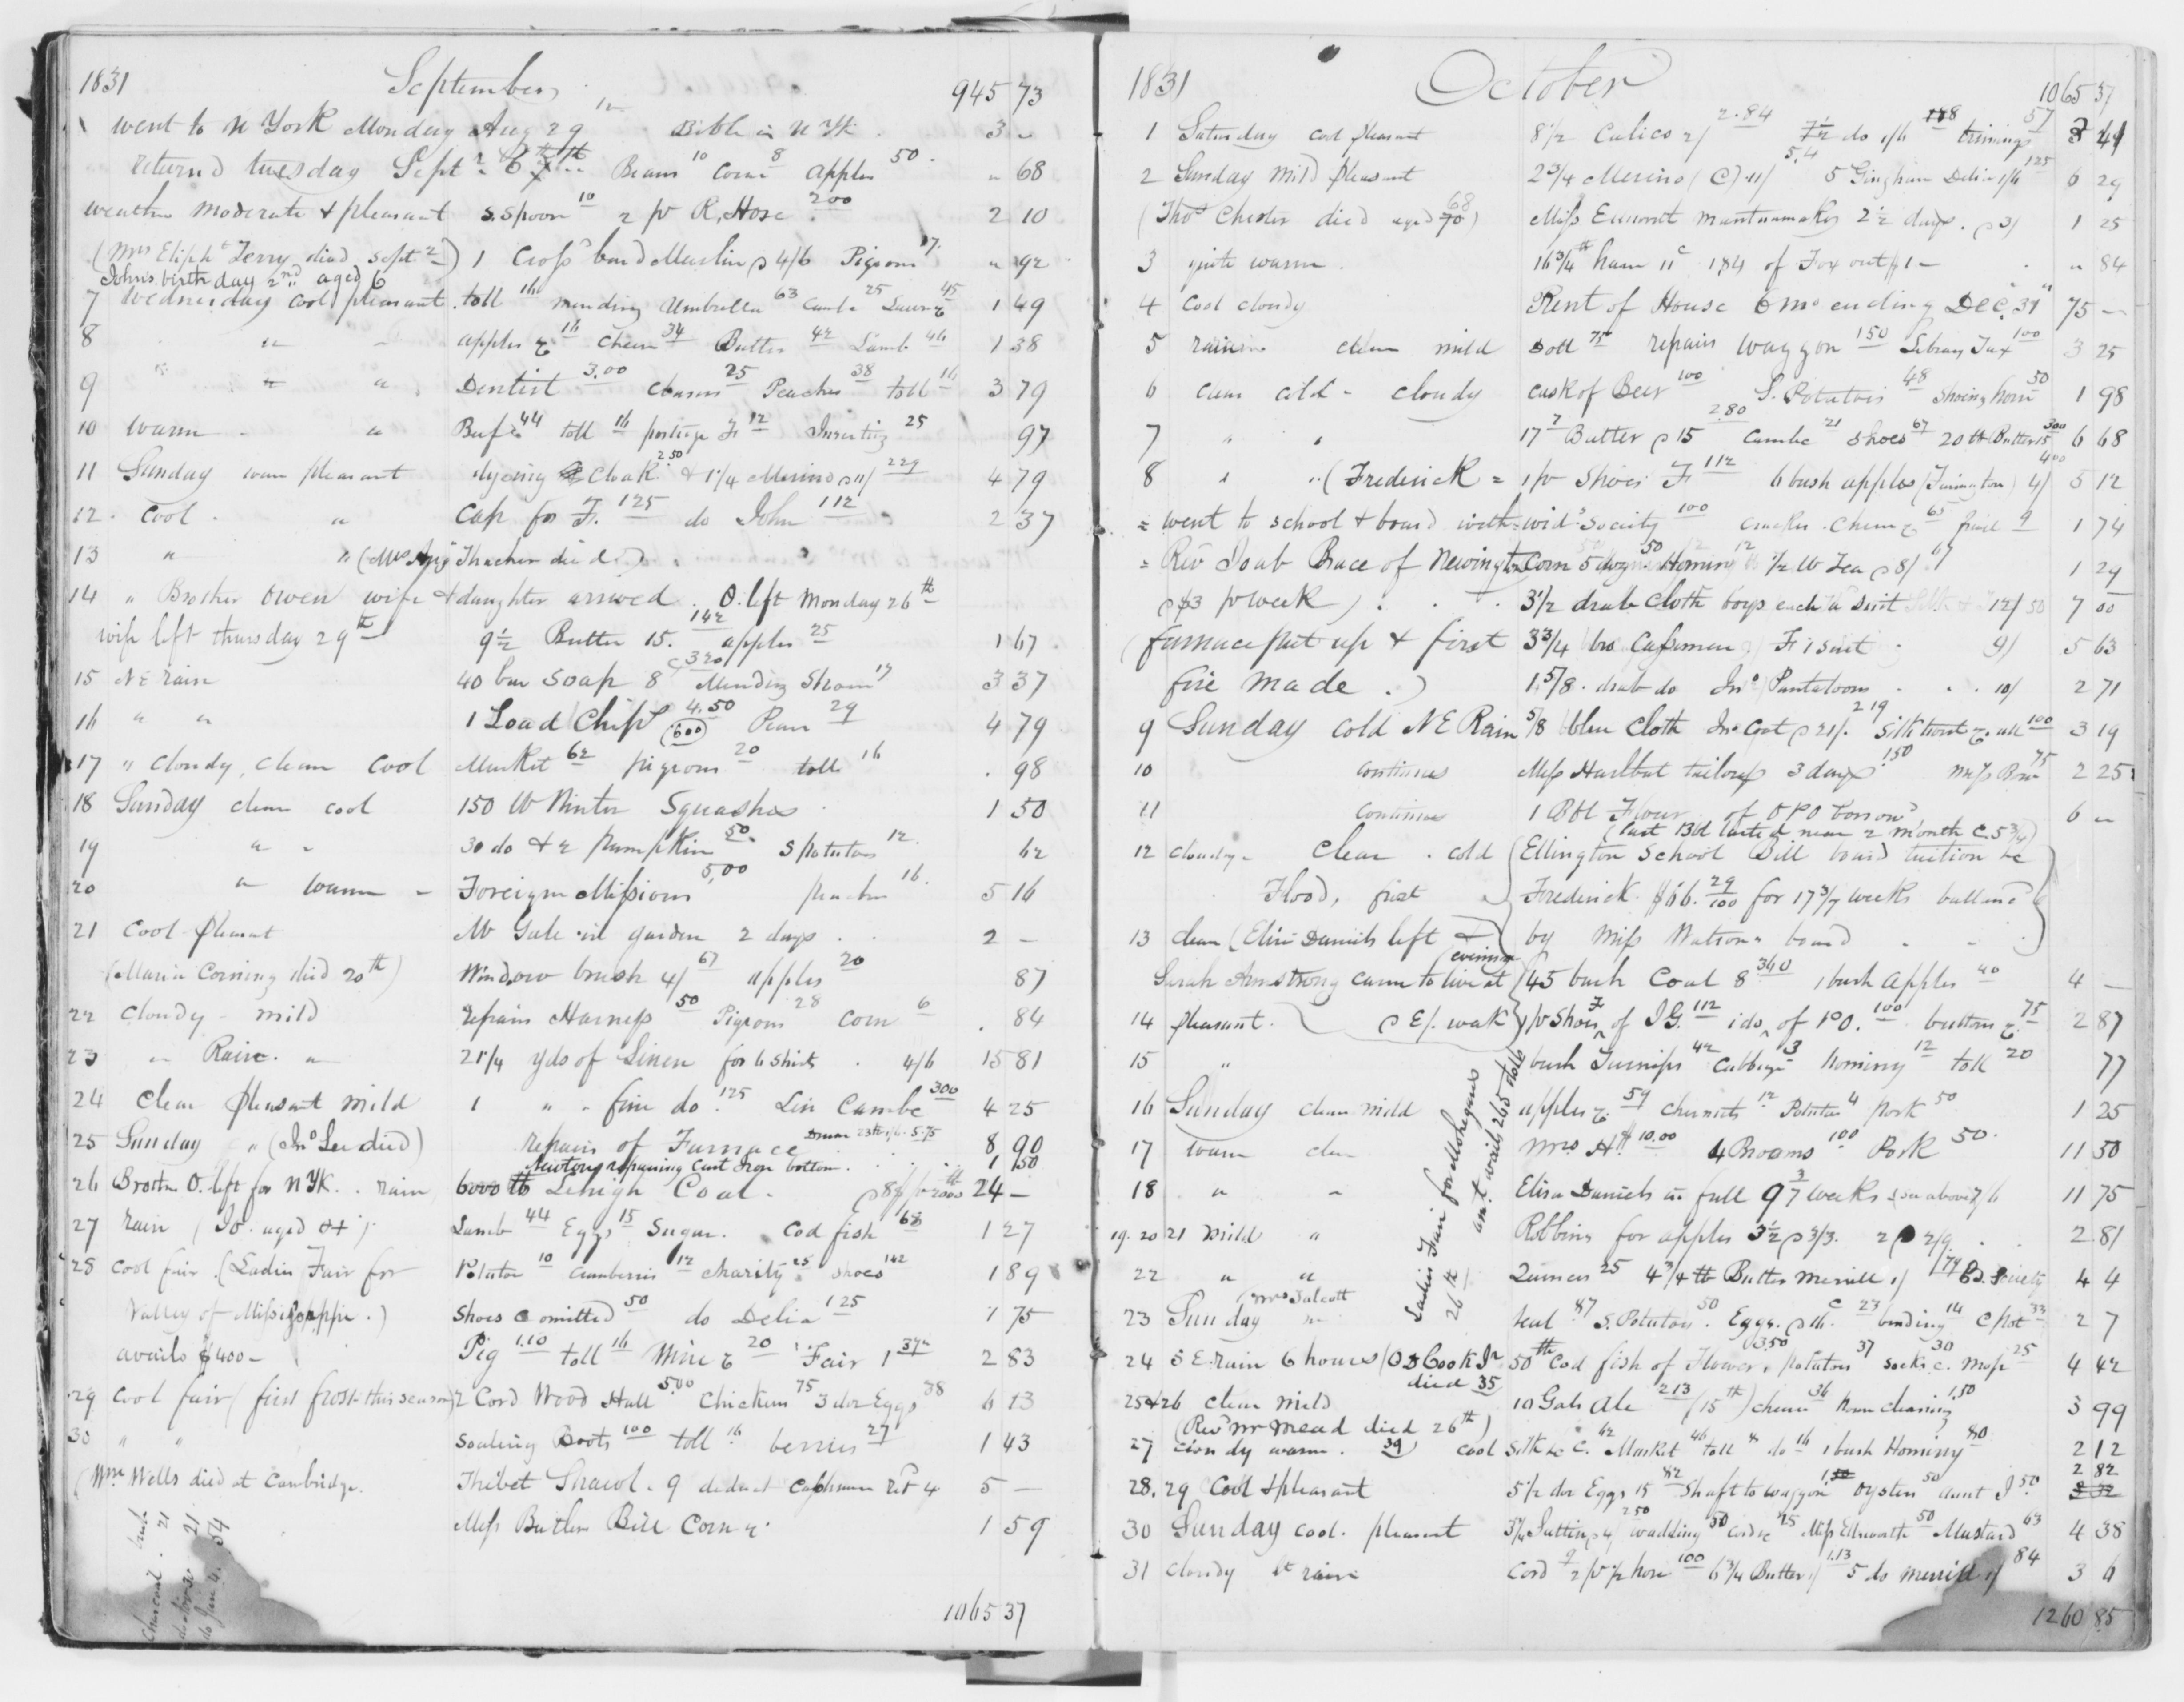 1831 September 945 73
went to N York Monday Aug 29 Bible in N Yk 3 "
returned tuesday Sept 6th Beans 10 Corn 8 apples 50 " 68
weather moderate & pleasant S. Spoon 10 2 pr R. Hose 200 2 10
(Mrs Eliph t Terry died Sept 2) 1 Cross band Muslin 4/6 Pigeons 17 " 92
Johns birth day 2nd aged 6
7 Wednesday cool pleasant toll 16 mending Umbrella 63 Cambc 25 45 1 49
8 " apples &c 16 Cheese 34 Butter 42 Lamb 46 1 38
9 " " " Dentist 3.00 25 Peaches 38 toll 16 3 79
10 warm " Beef 44 toll 16 postage F 12 Inserting 25 97
11 Sunday warm pleasant dyeing Cloak 2.50 & 1 1/4 Merino 11/ 229 4 79
12 Cool " Cap for F. 125 do John 112 2 37
13 " " (Mrs Thacher died)
14 " Brother Owen wife & daughter arrived. O. left Monday 26th
wife left thursday 29th 9 1/2 Butter 15. 142 apples 25 1 67
15 NE rain 40 bar Soap 8c 320 Mending Shoes 17 3 37
16 " " 1 Load Chips 4.50 (600) Pears 29 4 79
17 " Cloudy, clear cool Market 62 pigeons 20 toll 16 98
18 Sunday clear cool 150 lb Winter Squashes 1 50
19 " " 30 do & 2 pumpkin 50 S potatoes 12 62
20 " warm Foreign Missions 5,00 peaches 16 5 16
21 Cool pleasant Mr Gale in garden 2 days 2 -
(Maria Corning died 20th) Window brush 4/ 67 apples 20 87
22 Cloudy - mild repairs Harness 50 Pigeons 28 Corn 6 84
23 " Rain " 21 1/4 yds of Linen for 6 Shirts 4/6 15 81
24 Clear pleasant mild 1 " " fine do 125 Lin Cambc 300 4 25
25 Sunday " (Jno Lee died) repairs of Furnace 8 90
Newton repairing Cast Iron bottom 1 50
26 Brother O. left for N Yk. rain 6000 lb Lehigh Coal 8$ pr 2000 24 -
27 rain Lamb 44 Eggs 15 Sugar. Cod fish 68 1 27
28 Cool fair (Ladies Fair for Potatoes 10 Cranberries 12 charity 25 shoes 142 1 89
Valley of Mississippi.) Shoes C omitted 50 do Delia 125 1 75
avails $400 - Pig 1.10 toll 16 Mine &c 20 Fair 1 37 2 83
29 cool fair (first frost this season) 2 Cord Wood Hall 5.00 Chickens 75 3 doz Eggs 38 6 13
30 " " Soaling Boots 100 toll 16 berries 27 1 43
(Wm Wells died at Cambridge. Thibet Shawl. 9 deduct Cashmere ret 4 5 -
Miss Butler Bill Corn &c 1 59
Charcoal. bush 21
21
54
1065 37
1831 October 1065 37
1 Saturday cool pleasant 8 1/2 Calico 2/ 2.84 7 1/2 do 1/6 trimings 57 41
2 Sunday mild pleasant 2 3/4 Merino (C) 11/ 5 Gingham Delia 1/6 125 6 29
(Thos Chester died aged 68) Miss Emmont mantuamaker 2 1/2 days. 3/ 1 25
3 quite warm 16 3/4 lb ham 11c 184 of Fox out $1 - " 84
4 Cool cloudy Rent of House 6 mo ending Dec. 31 75 -
5 rain clear mild 75 repairs Waggon 150 Library Tax 100 3 25
6 clear cold - cloudy cask of Beer 100 S. Potatoes 48 Shoing horse 50 1 98
7 " " 17 Butter 15 2.80 Cambc 21 Shoes 67 20 lb Butter 15 300 6 68
8 " " (Frederick = 1 pr Shoes F 112 6 bush apples (Farmington) 4/ 400 5 12
= went to school & board with = wid's Society 100 cracker Cheese &c 65 9 1 74
= Rev Joab Brace of Newington Corn 5 doz 50 Hominy 12 1/2 lb Tea 8/ 67 1 29
$3 pr week) 3 1/2 drab Cloth boys 12/ 7 00
(furnace put up & first 3 3/4 bro Cassimere F 1 suit 9/ 5 63
fire made.) 1 5/8 drab do Jno Pantaloons 10/ 2 71
9 Sunday cold NE Rain 5/8 blue Cloth Jno Coat 21/. 219 Silk twist &c 100 3 19
10 Continues Miss Hurlbut tailoress 3 days 150 Miss 75 2 25
11 Continues 1 Bbl Flour of O P O borrowd 6 -
(last Bbl lasted near 2 month C. 5 3/4)
12 cloudy - clear. cold Ellington School Bill board tuition &c
Flood, first Frederick $66. 29/100 for 17 3/7 weeks ballanc'd
13 clear (Eliza Daniels left evening by Miss Watsons board
Sarah Armstrong came to live at 45 bush Coal 8 360 1 bush apples 40 4 -
14 pleasant. 6/. week) pr Shoes F of J G. 112 1 do, of P O. 100 buttons &c 75 2 87
15 " bush Turnips 42 Cabbage 3 hominy 12 toll 20 77
16 Sunday clear mild apples &c 59 chesnuts 12 Potatoes 4 pork 50 1 25
17 warm clear Mrs H $10.00 4 Brooms 100 Pork 50 11 50
18 " " Eliza Daniels in full 9 3/7 weeks 11 75
Ladies Fair for Mohegans 26th
amt avails 265 dolls
19. 20 21 mild " Robbins for apples 3 1/2 3/3. 2 2/9 2 81
22 " " Quinces 25 4 3/4 lb Butter Merrill 1/ 79 4 4
(Mrs Talcott
23 Sunday " Veal 87 S. Potatoes 50 Eggs 23 binding 14 C pot 33 2 7
24 S E. rain 6 hours (O D Cook Jr died 35 50 lb Cod fish of Flower, 1350 potatoes 37 socks C. 30 mop 25 4 42
25 & 26 clear mild 10 Gals Ale 213 (15th) cheese 36 house cleaning 1,50 3 99
(Revd Mr Mead died 26th) 39
27 cloudy warm. cool Silk &c C. 42 Market 46 toll 8 do 16 1 bush Hominy 80 2 12
28. 29 Cool & pleasant 5 1/2 doz Eggs 15 82 Shaft to waggon oysters 50 aunt J 50 2 82
30 Sunday cool. pleasant 250 wadding 50 Cord &c 25 Miss Ellsworth 50 Mustard 63 4 38
31 cloudy lt rain Cord 9 2 pr 1/2 hose 100 6 3/4 Butter 1/ 1.13 5 do Merrill 1/ 84 3 6
1260 85